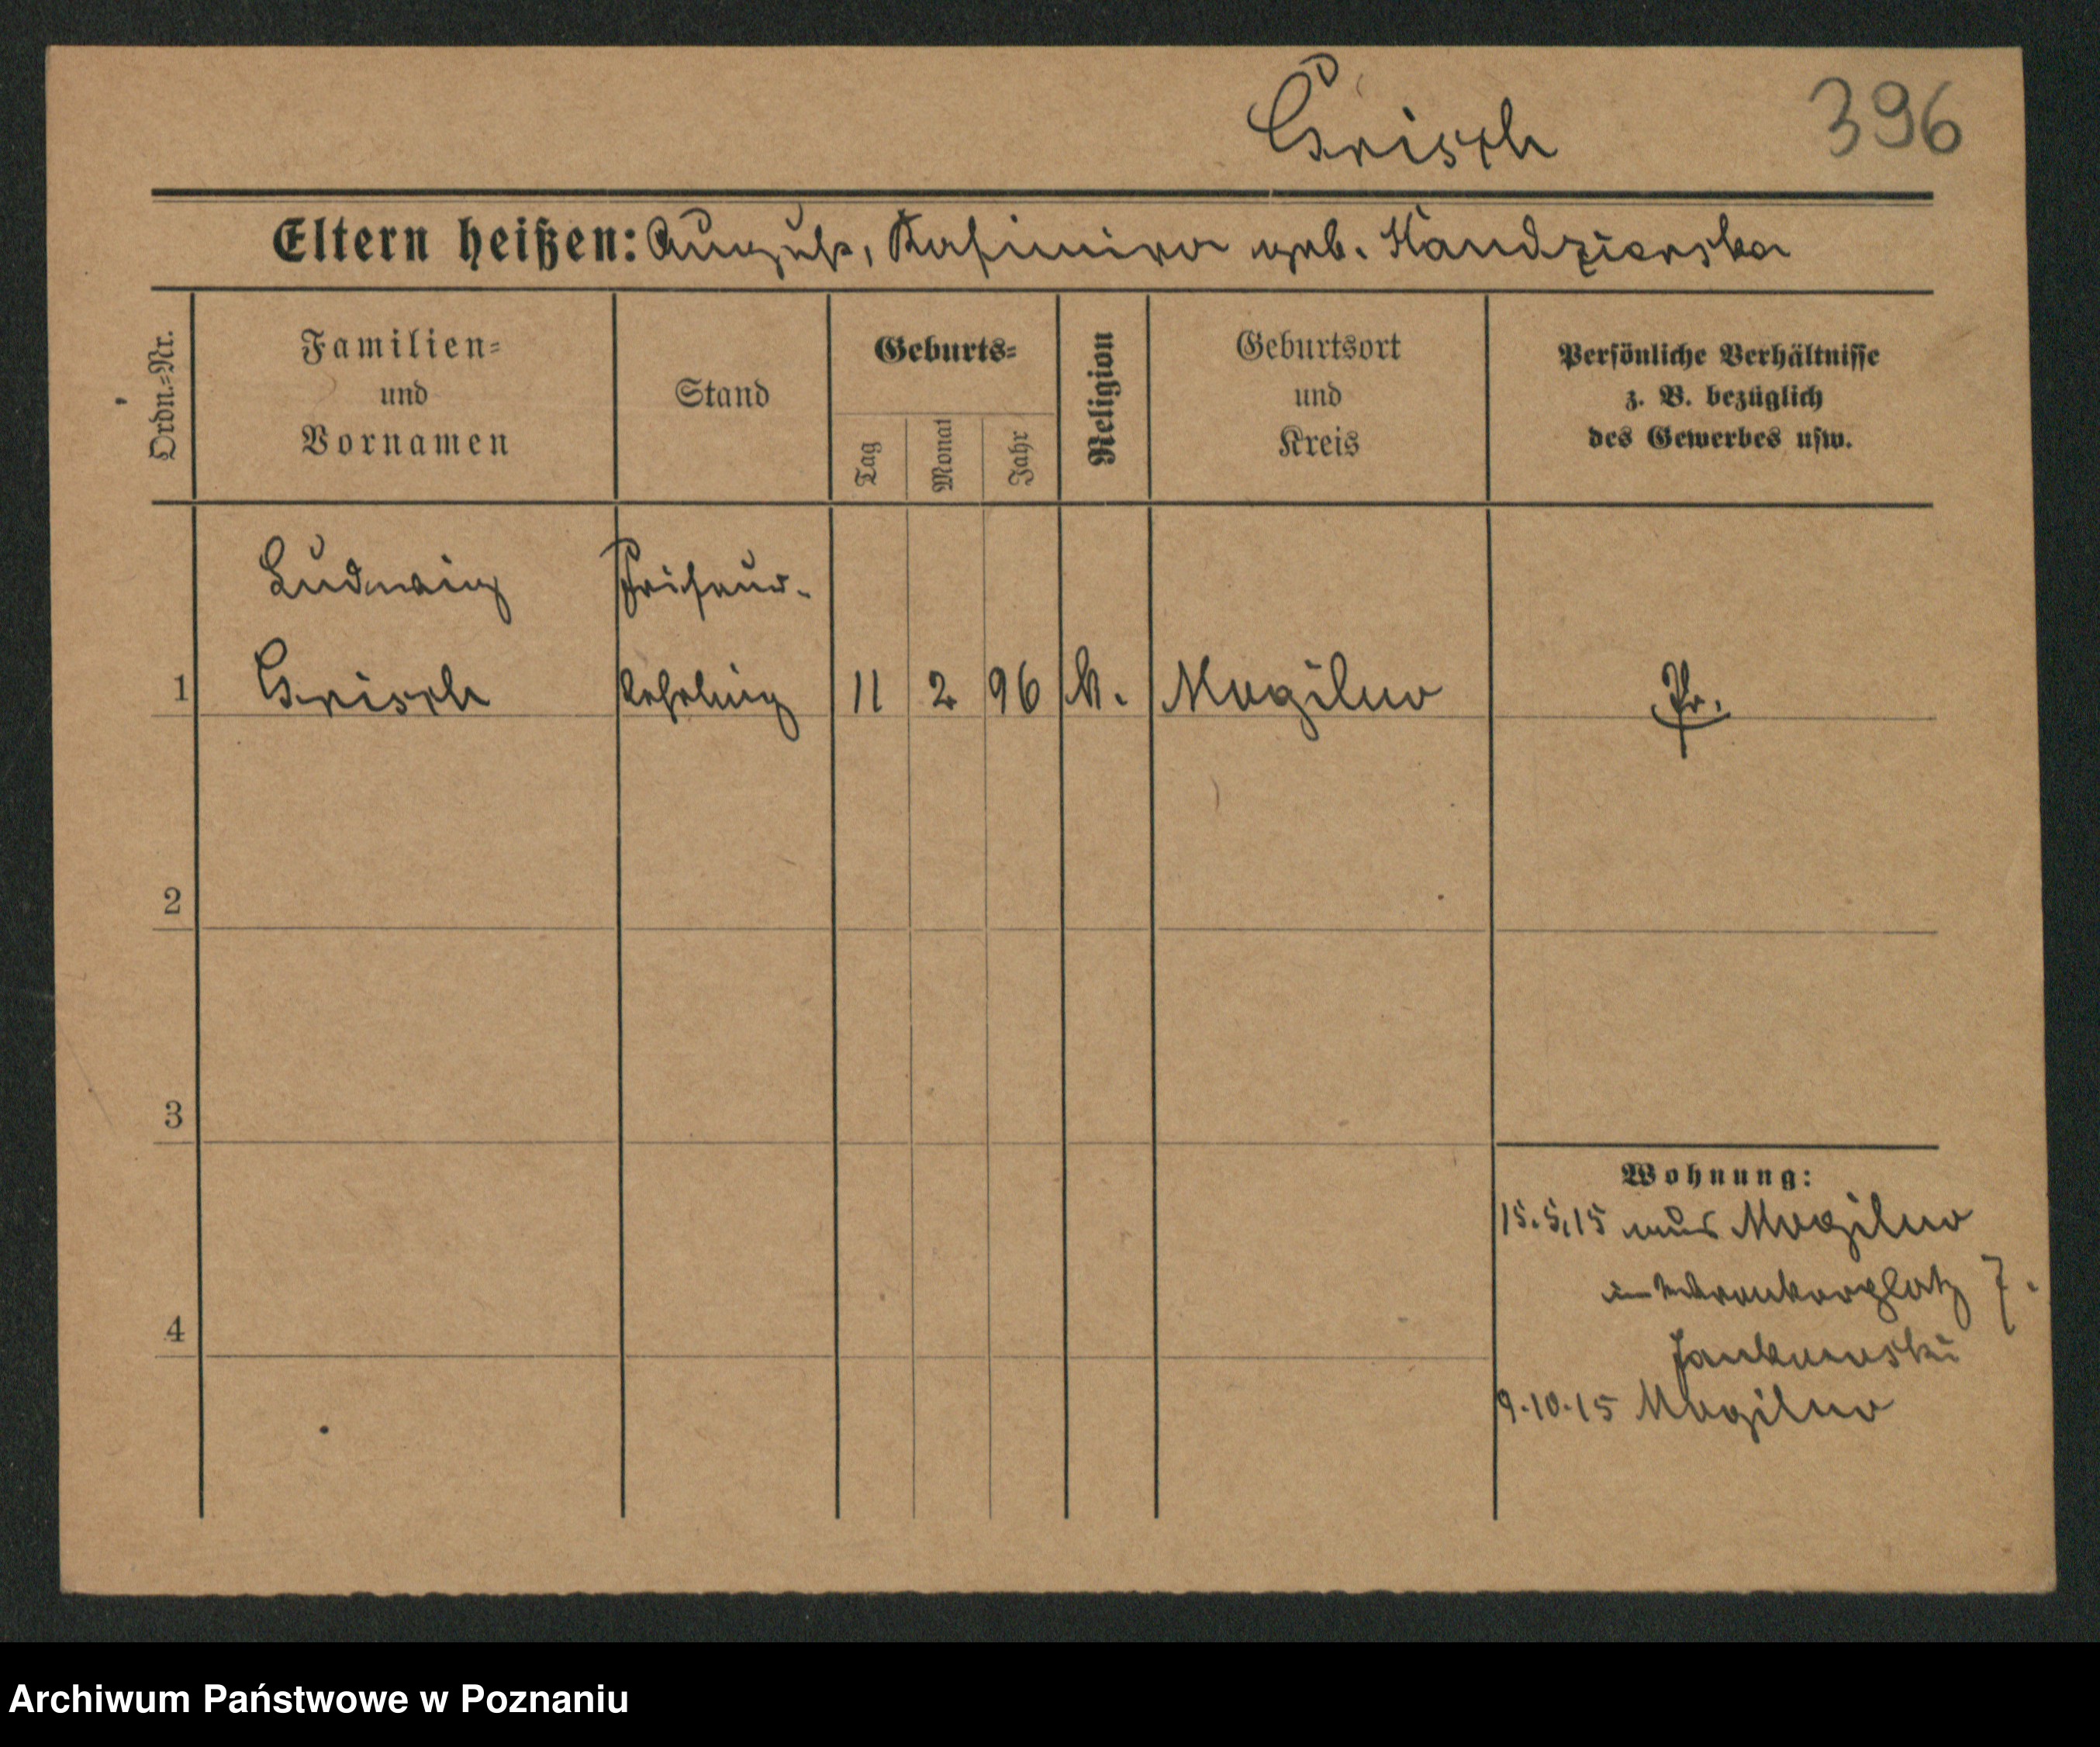 Grisch 396
Eltern heißen: August, Kasimira geb. Kandzierska
Ordn.-Nr.
Familien-
und
Vornamen
Stand
Geburts-
Tag
Monat
Jahr
Religion
Geburtsort
und
Kreis
Persönliche Verhältnisse
z. B. bezüglich
des Gewerbes usw.
Ludwig Friseur-
1 Grisch lehrling 11 2 96 k. Mogilno Pr.
2
3
Wohnung:
15.5.15 aus Mogilno
Wronkerplatz 7.
4
Jankowski
9.10.15 Mogilno
Archiwum Państwowe w Poznaniu